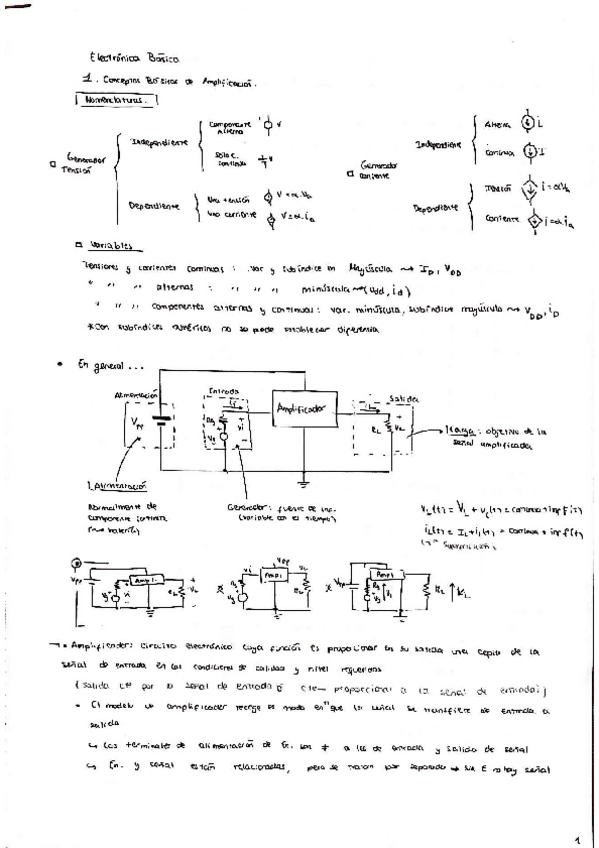 Electrónica Básica
1. Conceptos Básicos de Amplificación.
Nomenclaturas.
Generador Tensión
Independiente
Componente Alterna v
Sólo c. continua V
Dependiente
Una tensión V = α·Va
Una corriente V = α·ia
Generador corriente
Independiente
Alterna i
Continua I
Dependiente
Tensión i = αVa
Corriente i = α·ia
Variables
Tensiones y corrientes continuas : var y subíndice en Mayúscula → ID, VDD
" " " alternas : " " " minúscula → (vdd, id)
" " " componentes alternas y continuas : var. minúscula, subíndice mayúscula → vDD, iD
*Con subíndices numéricos no se puede establecer diferencia
• En general ...
Alimentación
Entrada
Salida
Amplificador
Vpp
Rg
vg
vi
ii
iL
RL
vL
Carga : objetivo de la señal amplificada
Alimentación
Normalmente de componente continua
Generador : fuente de inf. (variable con el tiempo)
vL(t) = VL + vl(t) = continua + inf f(t)
iL(t) = IL + il(t) = continua + inf(t)
Vpp
Ampl.
Rg
vg
vi
RL
vL
vi
Vpp
Ampl
Rg
vg
RL
Vpp
Ampl
Rg
vg
RL
• Amplificador: circuito electrónico cuya función es proporcionar en su salida una copia de la
señal de entrada en las condiciones de calidad y nivel requeridas
(salida por la señal de entrada ó cte— proporcional a la señal de entrada)
• El modelo de amplificador recoge el modo en que la señal se transfiere de entrada a
salida
↳ Los terminales de alimentación de En. son ≠ a los de entrada y salida de señal
↳ En. y señal están relacionadas, pero se tratan por separado → sin E no hay señal
1